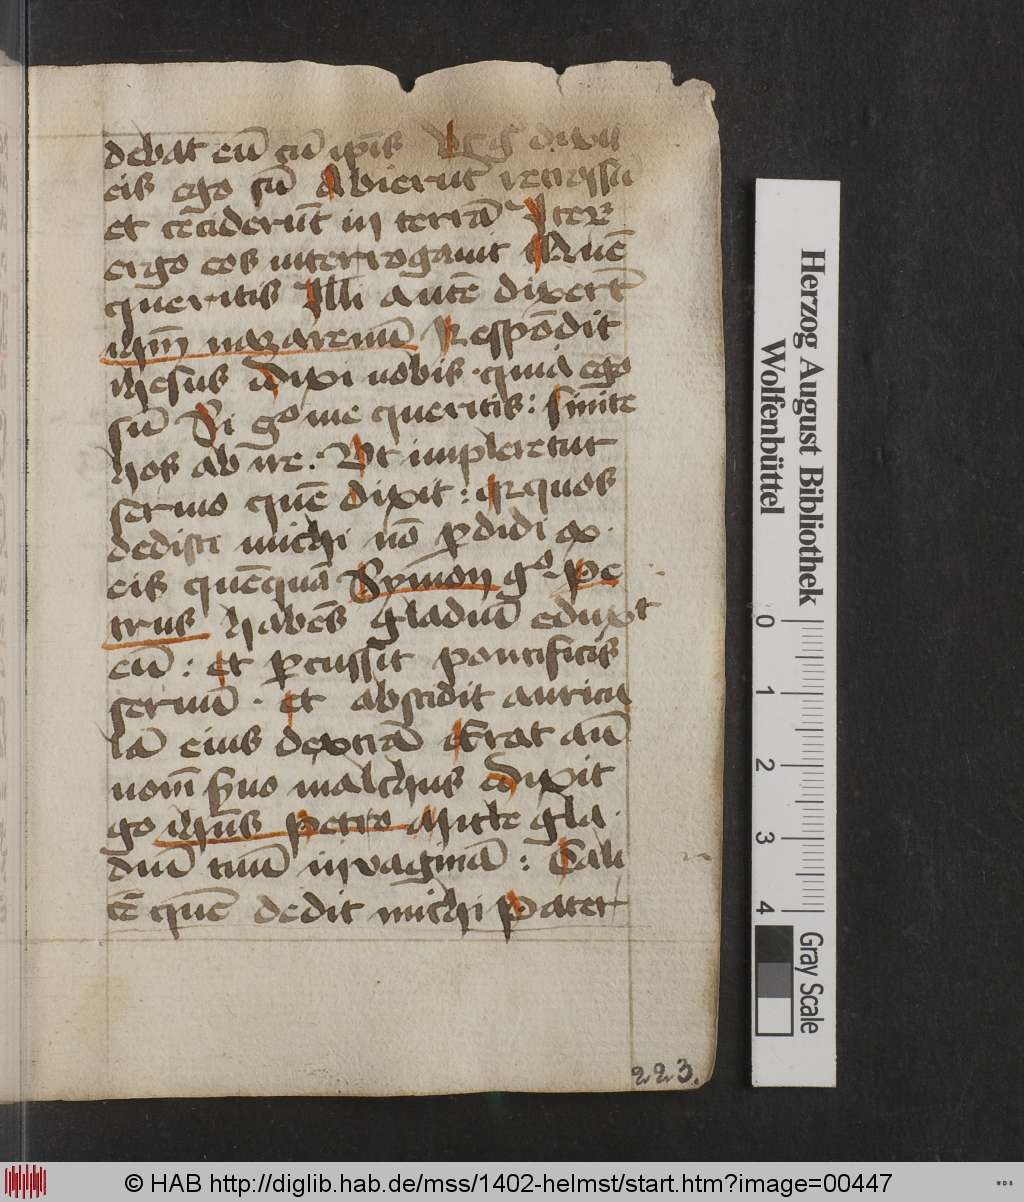 debat eū cū ip̄is Ut g̊ dixit
eis ego sū Abierūt retrorsū
et ceciderūt in terrā Iterū
ergo eos interrogavit Quē
queritis Illi autē dixerūt
ihm̄ nazarenū Respōdit
ihesus dixi vobis · quia ego
sū Si g̊ me queritis : sinite
hos abire : Ut impleretur
sermo quē dixit : quia quos
dedisti michi nō perdidi ex
eis quēquā Symon g̊ · Pe
trus habēs gladiū eduxit
eū : et percussit pontificis
servū · et abscidit auricu
lā eius dextrā Erat autē
nomē servo malchus dixit
g̊ ihūs Petro Mitte gla
diū tuū in vaginā : Cali
cē quē dedit michi Pater
223.
Herzog August Bibliothek
Wolfenbüttel
0 1 2 3 4
Gray Scale
© HAB http://diglib.hab.de/mss/1402-helmst/start.htm?image=00447